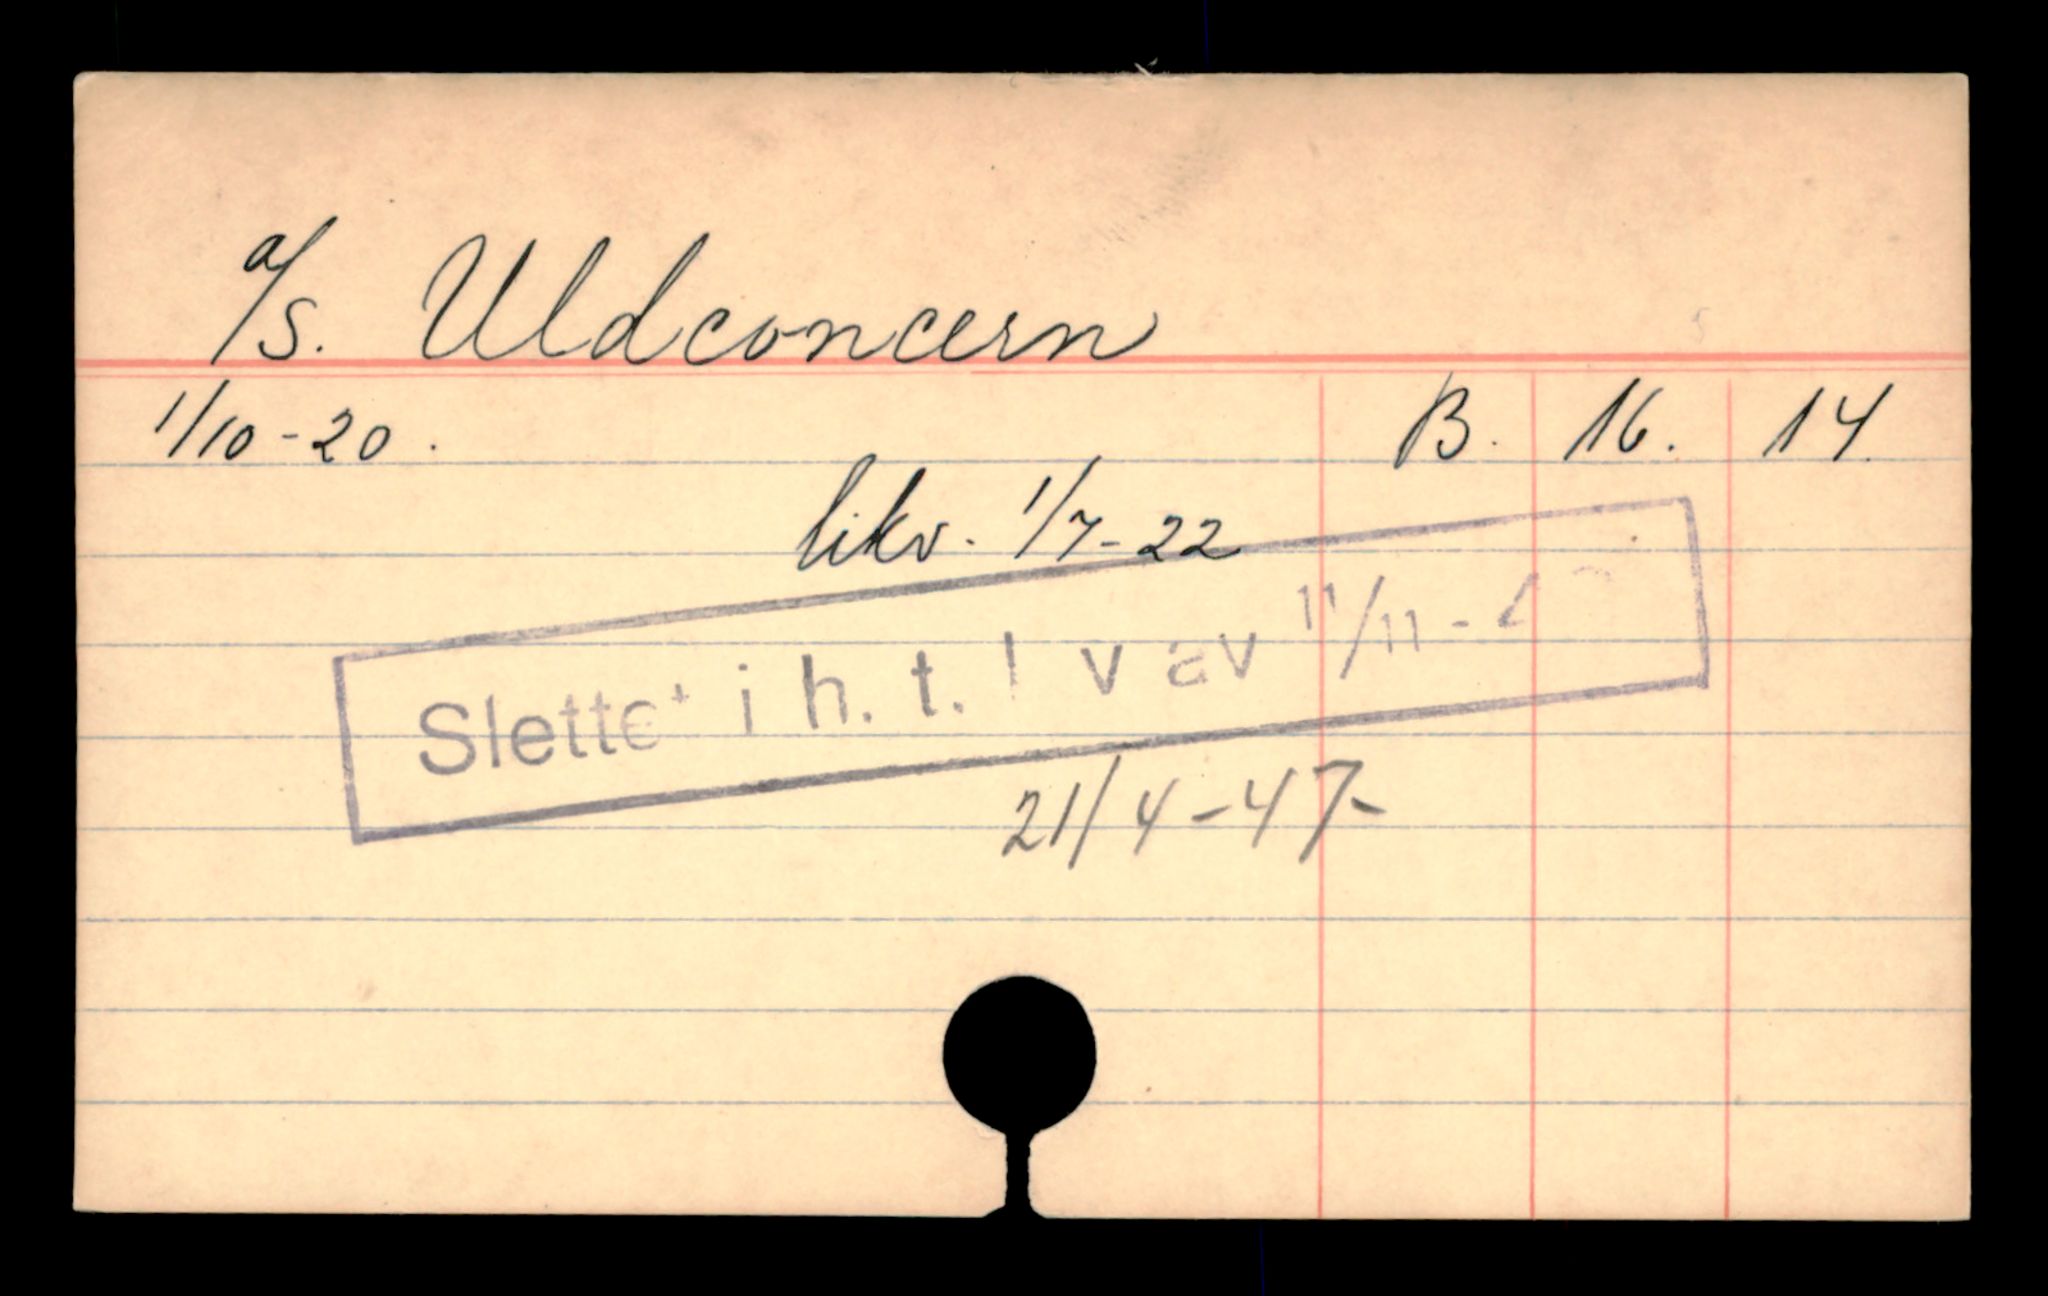 A/S. Uldconcern
1/10-20. B. 16. 14.
likv. 1/7-22
Slettet i h. t. l v av 11/11 -
21/4-47-